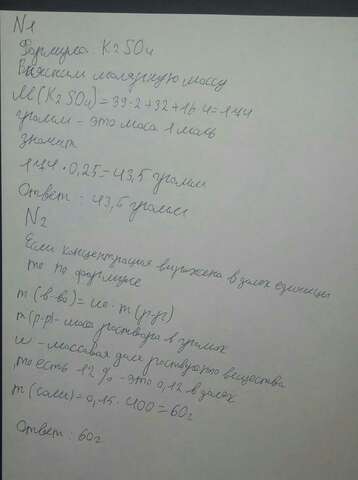 N1
Формула: K2SO4
Выясним молярную массу
M(K2SO4)=39·2+32+16·4=174
грамм - это маса 1 моль
значит
174·0,25=43,5 грамм
Ответ: 43,5 грамм
N2
Если концентрация выражена в долях единицы
то по формуле
m(в-ва)= w · m(р-р)
m(р-р)-маса раствора в граммах
w - массовая доля растворого вещества
то есть 12% - это 0,12 в долях
m(соли)=0,15·400=60г
Ответ: 60г